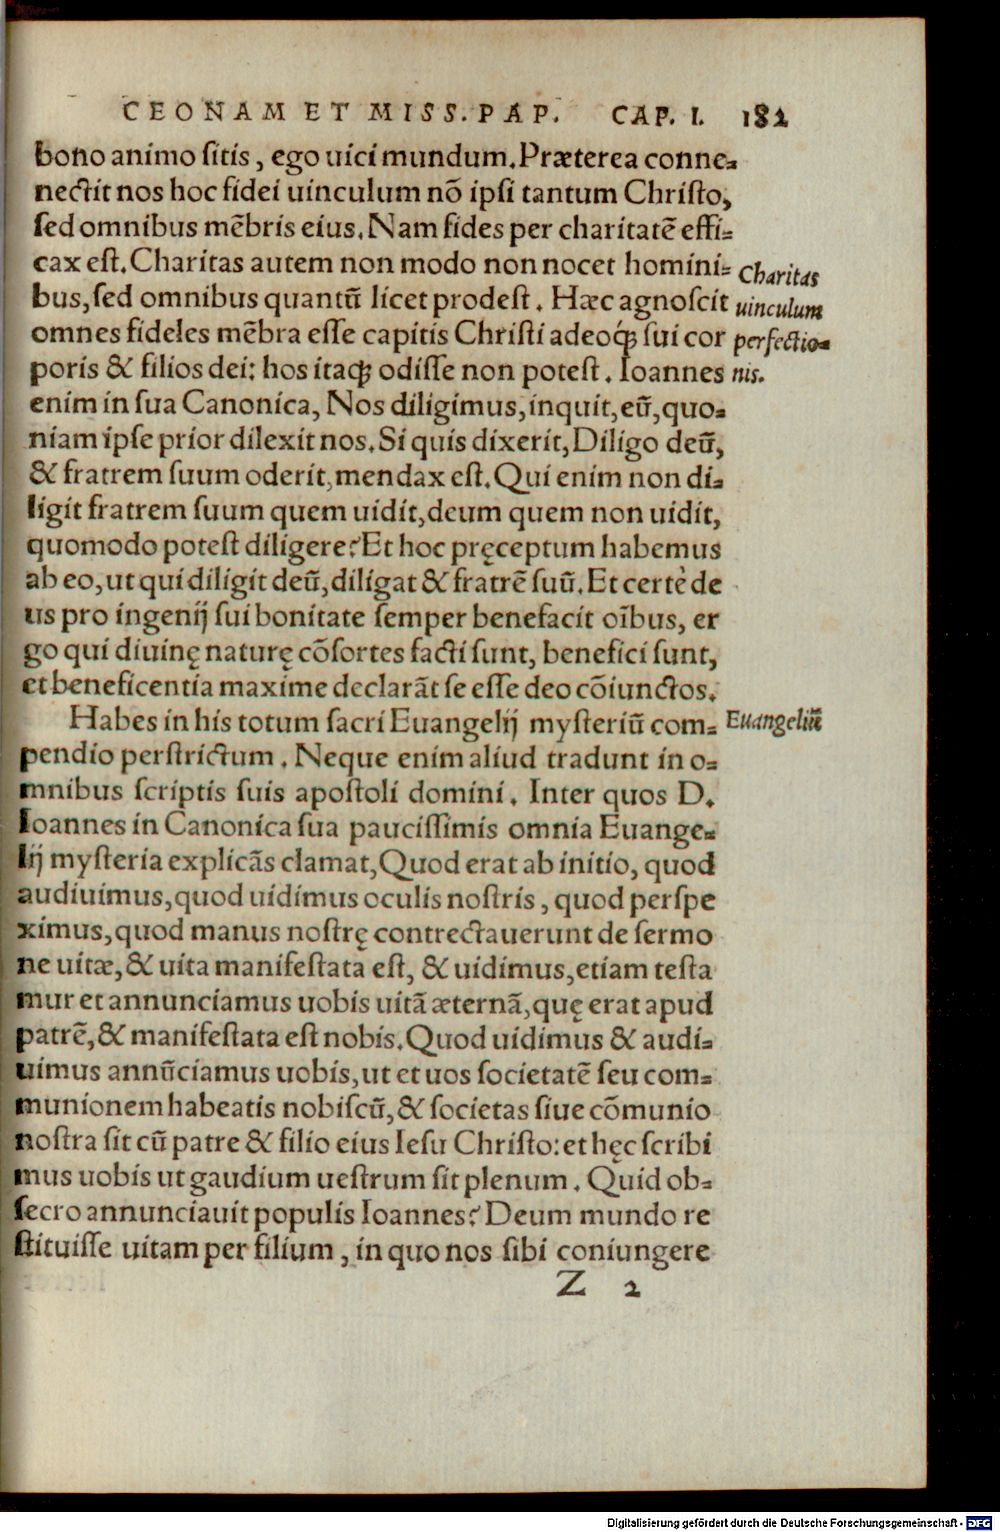 CEONAM ET MISS. PAP. CAP. I. 182
bono animo ſitis, ego uici mundum. Præterea conne-
nectit nos hoc fidei uinculum nō ipſi tantum Chriſto,
ſed omnibus mēbris eius. Nam fides per charitatē effi-
cax eſt. Charitas autem non modo non nocet homini-
bus, ſed omnibus quantū licet prodeſt. Hæc agnoſcit
omnes fideles mēbra eſſe capitis Chriſti adeoq́; ſui cor
poris & filios dei: hos itaq; odiſſe non poteſt. Ioannes
Charitas
uinculum
perfectio-
nis.
enim in ſua Canonica, Nos diligimus, inquit, eū, quo-
niam ipſe prior dilexit nos. Si quis dixerit, Diligo deū,
& fratrem ſuum oderit, mendax eſt. Qui enim non di-
ligit fratrem ſuum quem uidit, deum quem non uidit,
quomodo poteſt diligere? Et hoc pręceptum habemus
ab eo, ut qui diligit deū, diligat & fratrē ſuū. Et certè de
us pro ingenij ſui bonitate ſemper benefacit oībus, er
go qui diuinę naturę cōſortes facti ſunt, benefici ſunt,
et beneficentia maxime declarāt ſe eſſe deo cōiunctos.
Habes in his totum ſacri Euangelij myſteriū com-
Euangeliū
pendio perſtrictum. Neque enim aliud tradunt in o-
mnibus ſcriptis ſuis apoſtoli domini. Inter quos D.
Ioannes in Canonica ſua pauciſſimis omnia Euange-
lij myſteria explicās clamat, Quod erat ab initio, quod
audiuimus, quod uidimus oculis noſtris, quod perſpe
ximus, quod manus noſtrę contrectauerunt de ſermo
ne uitæ, & uita manifeſtata eſt, & uidimus, etiam teſta
mur et annunciamus uobis uitā æternā, quę erat apud
patrē, & manifeſtata eſt nobis. Quod uidimus & audi-
uimus annūciamus uobis, ut et uos ſocietatē ſeu com-
munionem habeatis nobiſcū, & ſocietas ſiue cōmunio
noſtra ſit cū patre & filio eius Ieſu Chriſto: et hęc ſcribi
mus uobis ut gaudium ueſtrum ſit plenum. Quid ob-
ſecro annunciauit populis Ioannes? Deum mundo re
ſtituiſſe uitam per filium, in quo nos ſibi coniungere
Z 2
Digitalisierung gefördert durch die Deutsche Forschungsgemeinschaft - DFG